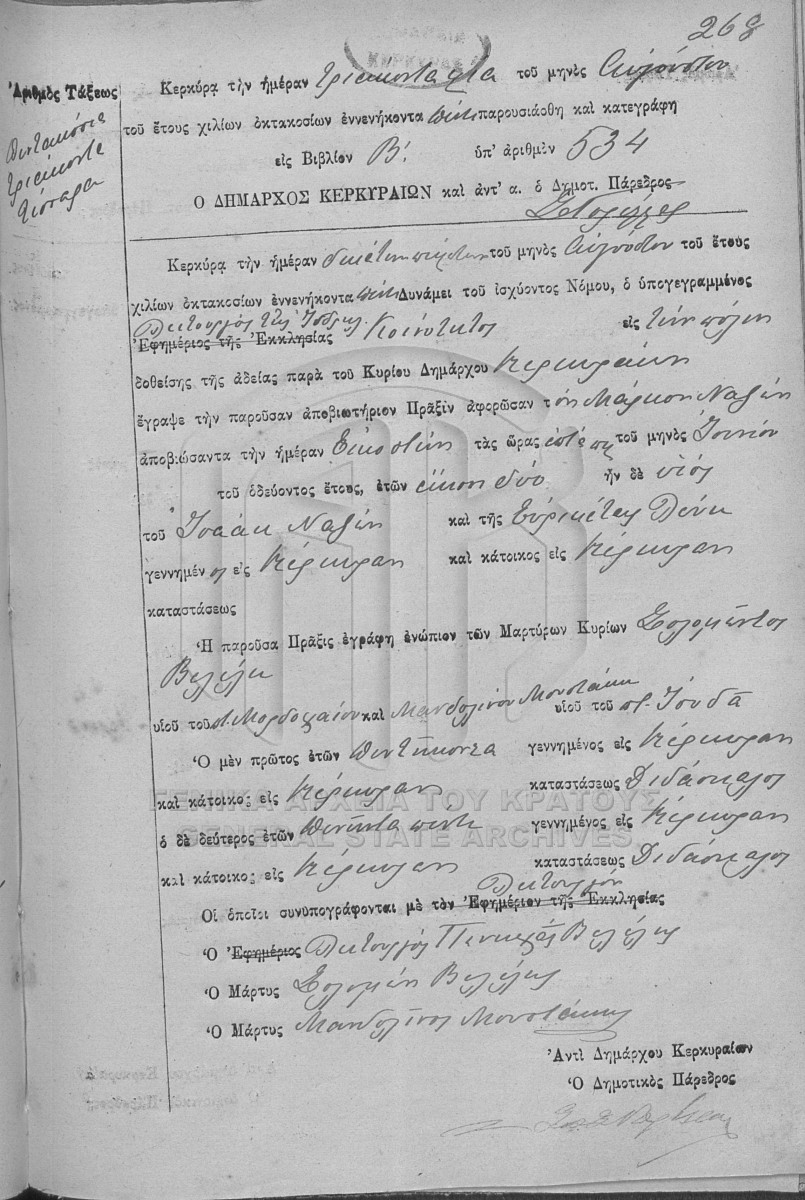 268
ΚΕΡΚΥΡΑΣ
Ἀριθμὸς Τάξεως
Πεντακόσια
τριάκοντα
τέσσαρα
Κερκύρᾳ τὴν ἡμέραν τριακόντα μία τοῦ μηνὸς Αὐγούστου
τοῦ ἔτους χιλίων ὀκτακοσίων ἐννενήκοντα πέντε παρουσιάσθη καὶ κατεγράφη
εἰς Βιβλίον Β΄. ὑπ' ἀριθμὸν 534
Ο ΔΗΜΑΡΧΟΣ ΚΕΡΚΥΡΑΙΩΝ καὶ ἀντ' α. ὁ Δημοτ. Πάρεδρος
Κερκύρᾳ τὴν ἡμέραν δεκάτην πέμπτην τοῦ μηνὸς Αὐγούστου τοῦ ἔτους
χιλίων ὀκτακοσίων ἐννενήκοντα πέντε Δυνάμει τοῦ ἰσχύοντος Νόμου, ὁ ὑπογεγραμμένος
Λειτουργὸς τῆς Ἰσδρλ. Κοινότητος
Ἐφημέριος τῆς Ἐκκλησίας εἰς τὴν πόλιν
δοθείσης τῆς ἀδείας παρὰ τοῦ Κυρίου Δημάρχου Κερκυραίων
ἔγραψε τὴν παροῦσαν ἀποβιωτήριον Πρᾶξιν ἀφορῶσαν τὸν Μάρκον Ναξὼν
ἀποβιώσαντα τὴν ἡμέραν Εἰκοστὴν τὰς ὥρας ἑπτὰ πμ τοῦ μηνὸς Ἰουνίου
τοῦ ὁδεύοντος ἔτους, ἐτῶν εἴκοσι δύο ἦν δὲ υἱὸς
τοῦ Ἰσαὰκ Ναξὼν καὶ τῆς Εὐρικέτας
γεννημέν ος εἰς Κέρκυραν καὶ κάτοικος εἰς Κέρκυραν
καταστάσεως
Ἡ παροῦσα Πρᾶξις ἐγράφη ἐνώπιον τῶν Μαρτύρων Κυρίων Σολομῶντος
Βελέλη
υἱοῦ τοῦ π. Μορδοχαίου καὶ Μανδολίνου Μουστάκη υἱοῦ τοῦ π. Ἰουδᾶ
Ὁ μὲν πρῶτος ἐτῶν πεντήκοντα γεννημένος εἰς Κέρκυραν
καὶ κάτοικος εἰς Κέρκυραν καταστάσεως Διδάσκαλος
ὁ δὲ δεύτερος ἐτῶν πεντήκοντα πέντε γεννημένος εἰς Κέρκυραν
καὶ κάτοικος εἰς Κέρκυραν καταστάσεως Διδάσκαλος
Λειτουργὸν
Οἱ ὁποῖοι συνυπογράφονται μὲ τὸν Ἐφημέριον τῆς Ἐκκλησίας
Ὁ Ἐφημέριος Λειτουργὸς Βελέλης
Ὁ Μάρτυς Σολομὼν Βελέλης
Ὁ Μάρτυς Μανδολίνος Μουστάκης
Ἀντὶ Δημάρχου Κερκυραίων
Ὁ Δημοτικὸς Πάρεδρος
ΓΕΝΙΚΑ ΑΡΧΕΙΑ ΤΟΥ ΚΡΑΤΟΥΣ
GENERAL STATE ARCHIVES